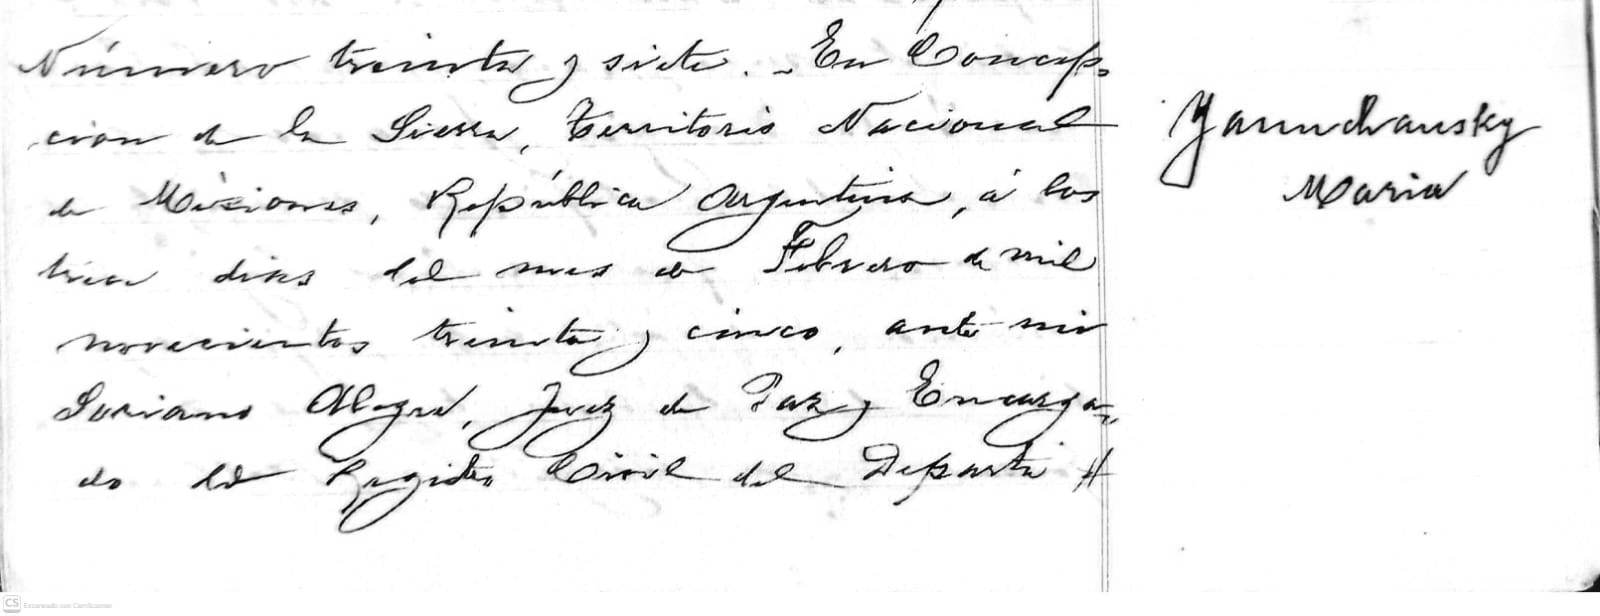 Número treinta y siete. - En Concep-
cion de la Sierra, Territorio Nacional
de Misiones, República Argentina, á los
trece dias del mes de Febrero de mil
novecientos treinta y cinco, ante mi
Soriano Alegre, Juez de Paz y Encarga-
do del Registro Civil del Departa //
Maria
CS Escaneado con CamScanner